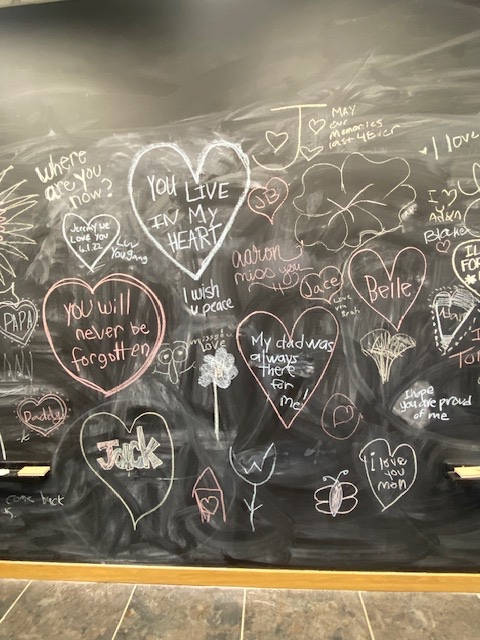 where
are you
now?
J
MAY
our
memories
last 4Ever
I love
YOU LIVE
IN MY
HEART
JB
I ♡
Blake
Jeremy we
LOVE YOU
6.1.22
Luv
You Gang
aaron
miss you
Jace
Love
Belle
PAPA
you will
never be
forgotten
I wish
u peace
miss u
Love
My dad was
always
there
for
me!
I hope
you are proud
of me
Daddy
Jack
W
i love
you
mom
come back